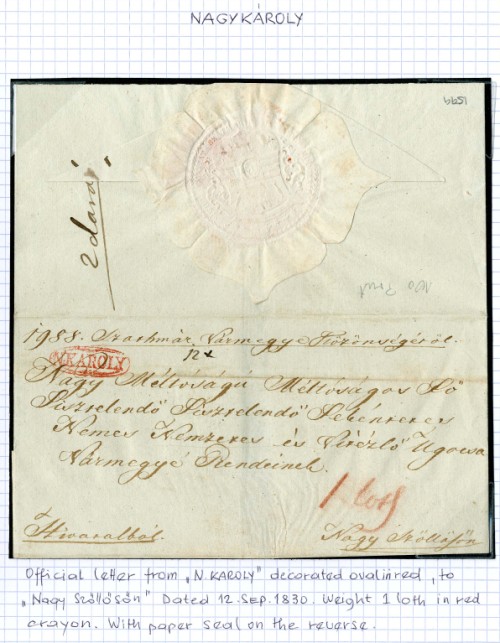 NAGYKÁROLY
2 darab
1988. Szathmár Vármegye Közönségétöl.
12 x
N.KAROLY
Nagy Méltóságú Méltóságos Fö
Tisztelendö Tisztelendö Tekéntetes
Nemes Nemzetes és Vitézlö Ugocsa
Vármegyé Rendeinek.
1 loth
Hivatalból.
Nagy Szöllösön
Official letter from „N.KAROLY" decorated oval in red, to
„Nagy Szöllősőn" Dated 12.SEP.1830. Weight 1 loth in red
crayon. With paper seal on the reverse.